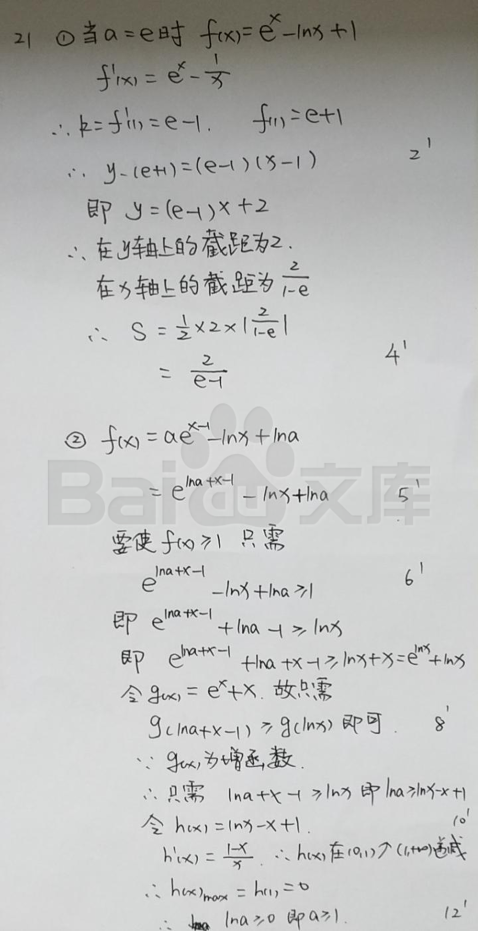 21 ① 当a=e时 f(x)=e^x-lnx+1
f'(x)=e^x-1/x
∴k=f'(1)=e-1. f(1)=e+1
∴ y-(e+1)=(e-1)(x-1) 2'
即 y=(e-1)x+2
∴在y轴上的截距为2.
在x轴上的截距为2/(1-e)
∴ S=1/2×2×|2/(1-e)|
=2/(e-1) 4'
② f(x)=ae^(x-1)-lnx+lna
=e^(lna+x-1)-lnx+lna 5'
Bai 文库
要使f(x)≥1 只需
e^(lna+x-1)-lnx+lna≥1 6'
即 e^(lna+x-1)+lna-1≥lnx
即 e^(lna+x-1)+lna+x-1≥lnx+x=e^(lnx)+lnx
令g(x)=e^x+x. 故只需
g(lna+x-1)≥g(lnx)即可. 8'
∵g(x)为增函数.
∴只需 lna+x-1≥lnx 即lna≥lnx-x+1
令h(x)=lnx-x+1. 10'
h'(x)=(1-x)/x. ∴h(x)在(0,1)↗(1,+∞)递减
∴h(x)max=h(1)=0
∴ lna≥0 即a≥1. 12'